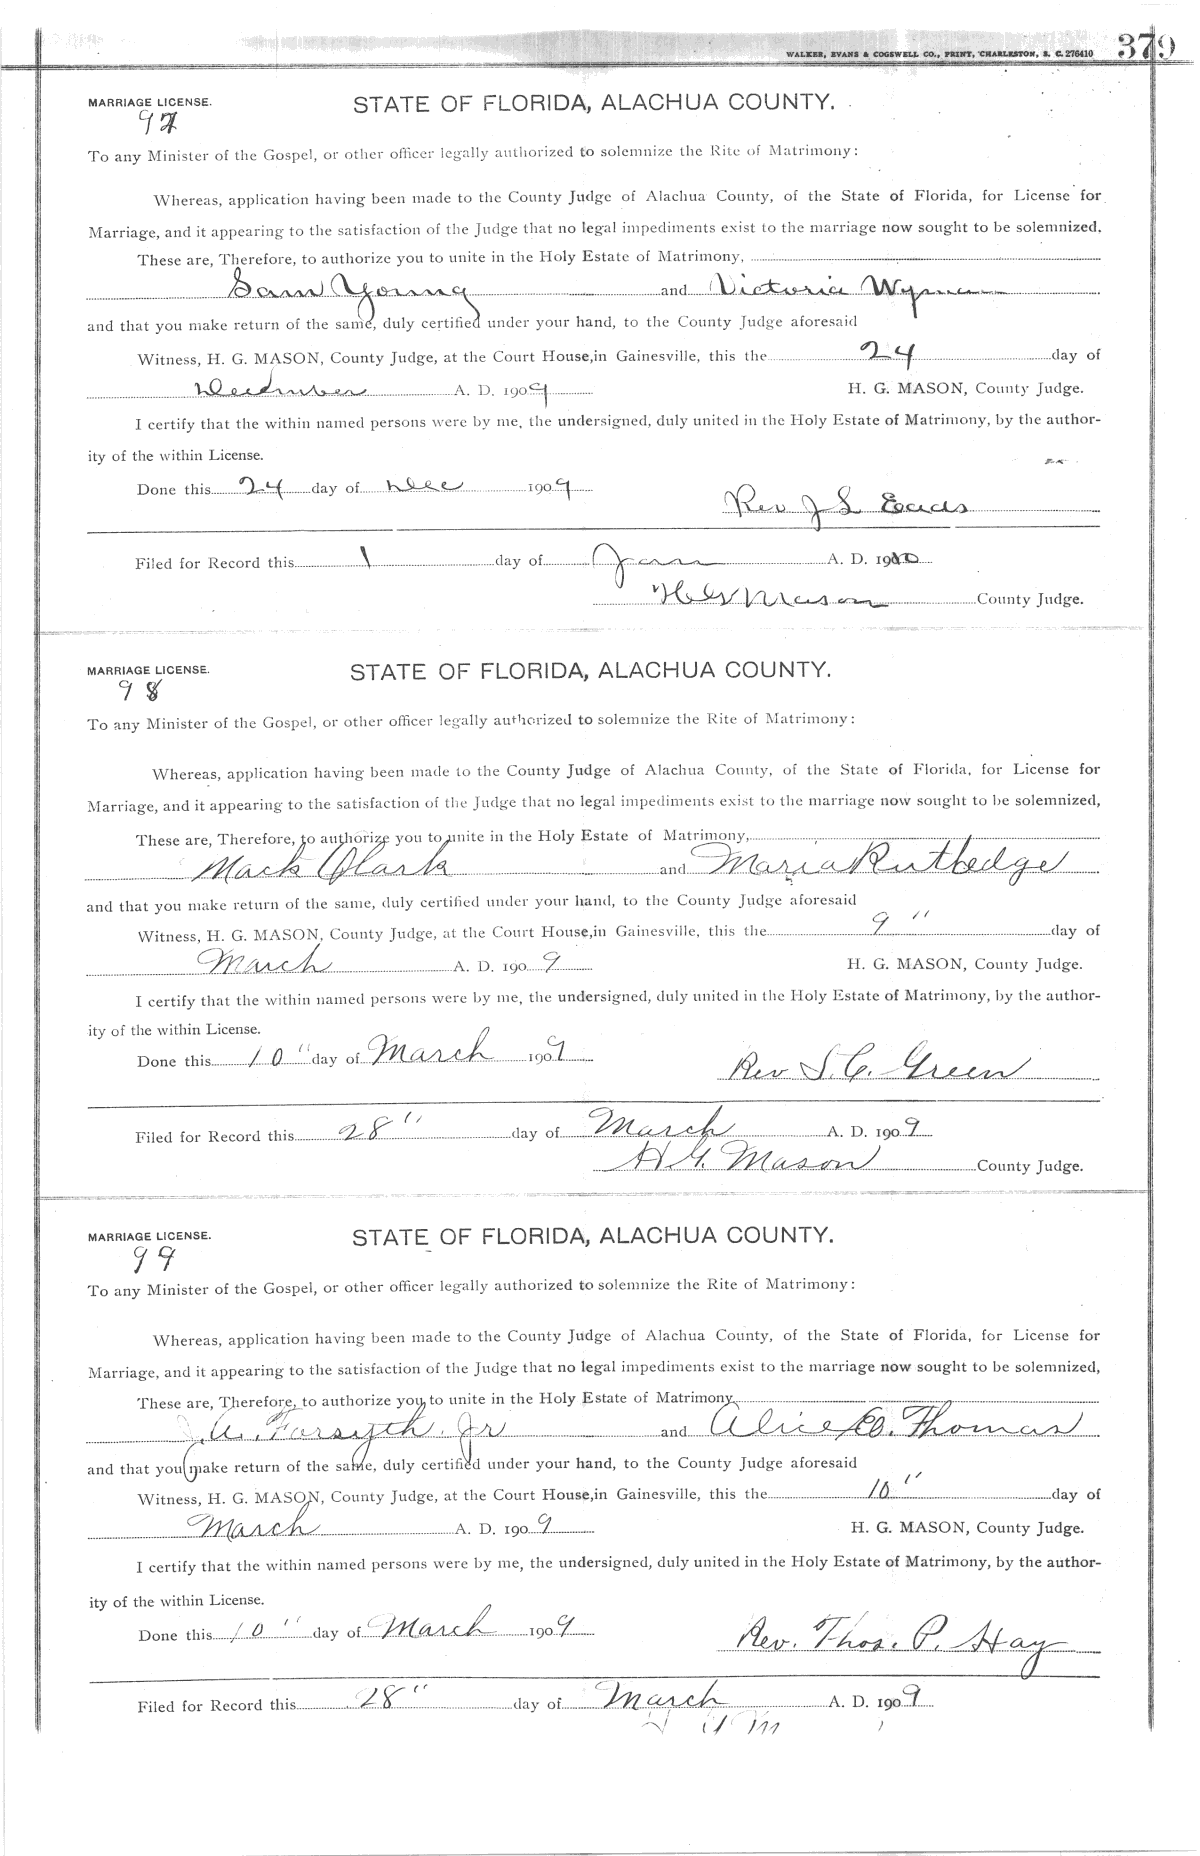 WALKER, EVANS & COGSWELL CO., PRINT, CHARLESTON, S. C. 276410 379
MARRIAGE LICENSE. STATE OF FLORIDA, ALACHUA COUNTY.
97
To any Minister of the Gospel, or other officer legally authorized to solemnize the Rite of Matrimony:
Whereas, application having been made to the County Judge of Alachua County, of the State of Florida, for License for
Marriage, and it appearing to the satisfaction of the Judge that no legal impediments exist to the marriage now sought to be solemnized.
These are, Therefore, to authorize you to unite in the Holy Estate of Matrimony,
Sam Young and Victoria Wyman
and that you make return of the same, duly certified under your hand, to the County Judge aforesaid
Witness, H. G. MASON, County Judge, at the Court House,in Gainesville, this the 24 day of
December A. D. 1909 H. G. MASON, County Judge.
I certify that the within named persons were by me, the undersigned, duly united in the Holy Estate of Matrimony, by the author-
ity of the within License.
Done this 24 day of Dec 1909
Rev J S Eads
Filed for Record this 1 day of Jan A. D. 1910
H G Mason County Judge.
MARRIAGE LICENSE. STATE OF FLORIDA, ALACHUA COUNTY.
98
To any Minister of the Gospel, or other officer legally authorized to solemnize the Rite of Matrimony:
Whereas, application having been made to the County Judge of Alachua County, of the State of Florida, for License for
Marriage, and it appearing to the satisfaction of the Judge that no legal impediments exist to the marriage now sought to be solemnized,
These are, Therefore, to authorize you to unite in the Holy Estate of Matrimony,
Mack Clark and Maria Rutledge
and that you make return of the same, duly certified under your hand, to the County Judge aforesaid
Witness, H. G. MASON, County Judge, at the Court House,in Gainesville, this the 9" day of
March A. D. 1909 H. G. MASON, County Judge.
I certify that the within named persons were by me, the undersigned, duly united in the Holy Estate of Matrimony, by the author-
ity of the within License.
Done this 10" day of March 1909
Rev S. C. Green
Filed for Record this 28" day of March A. D. 1909
H G. Mason County Judge.
MARRIAGE LICENSE. STATE OF FLORIDA, ALACHUA COUNTY.
99
To any Minister of the Gospel, or other officer legally authorized to solemnize the Rite of Matrimony:
Whereas, application having been made to the County Judge of Alachua County, of the State of Florida, for License for
Marriage, and it appearing to the satisfaction of the Judge that no legal impediments exist to the marriage now sought to be solemnized,
These are, Therefore, to authorize you to unite in the Holy Estate of Matrimony
J. A. Forsyth. Jr and Alice Thomas
and that you make return of the same, duly certified under your hand, to the County Judge aforesaid
Witness, H. G. MASON, County Judge, at the Court House,in Gainesville, this the 10" day of
March A. D. 1909 H. G. MASON, County Judge.
I certify that the within named persons were by me, the undersigned, duly united in the Holy Estate of Matrimony, by the author-
ity of the within License.
Done this 10" day of March 1909
Rev. Thos. P. Hay
Filed for Record this 28" day of March A. D. 1909